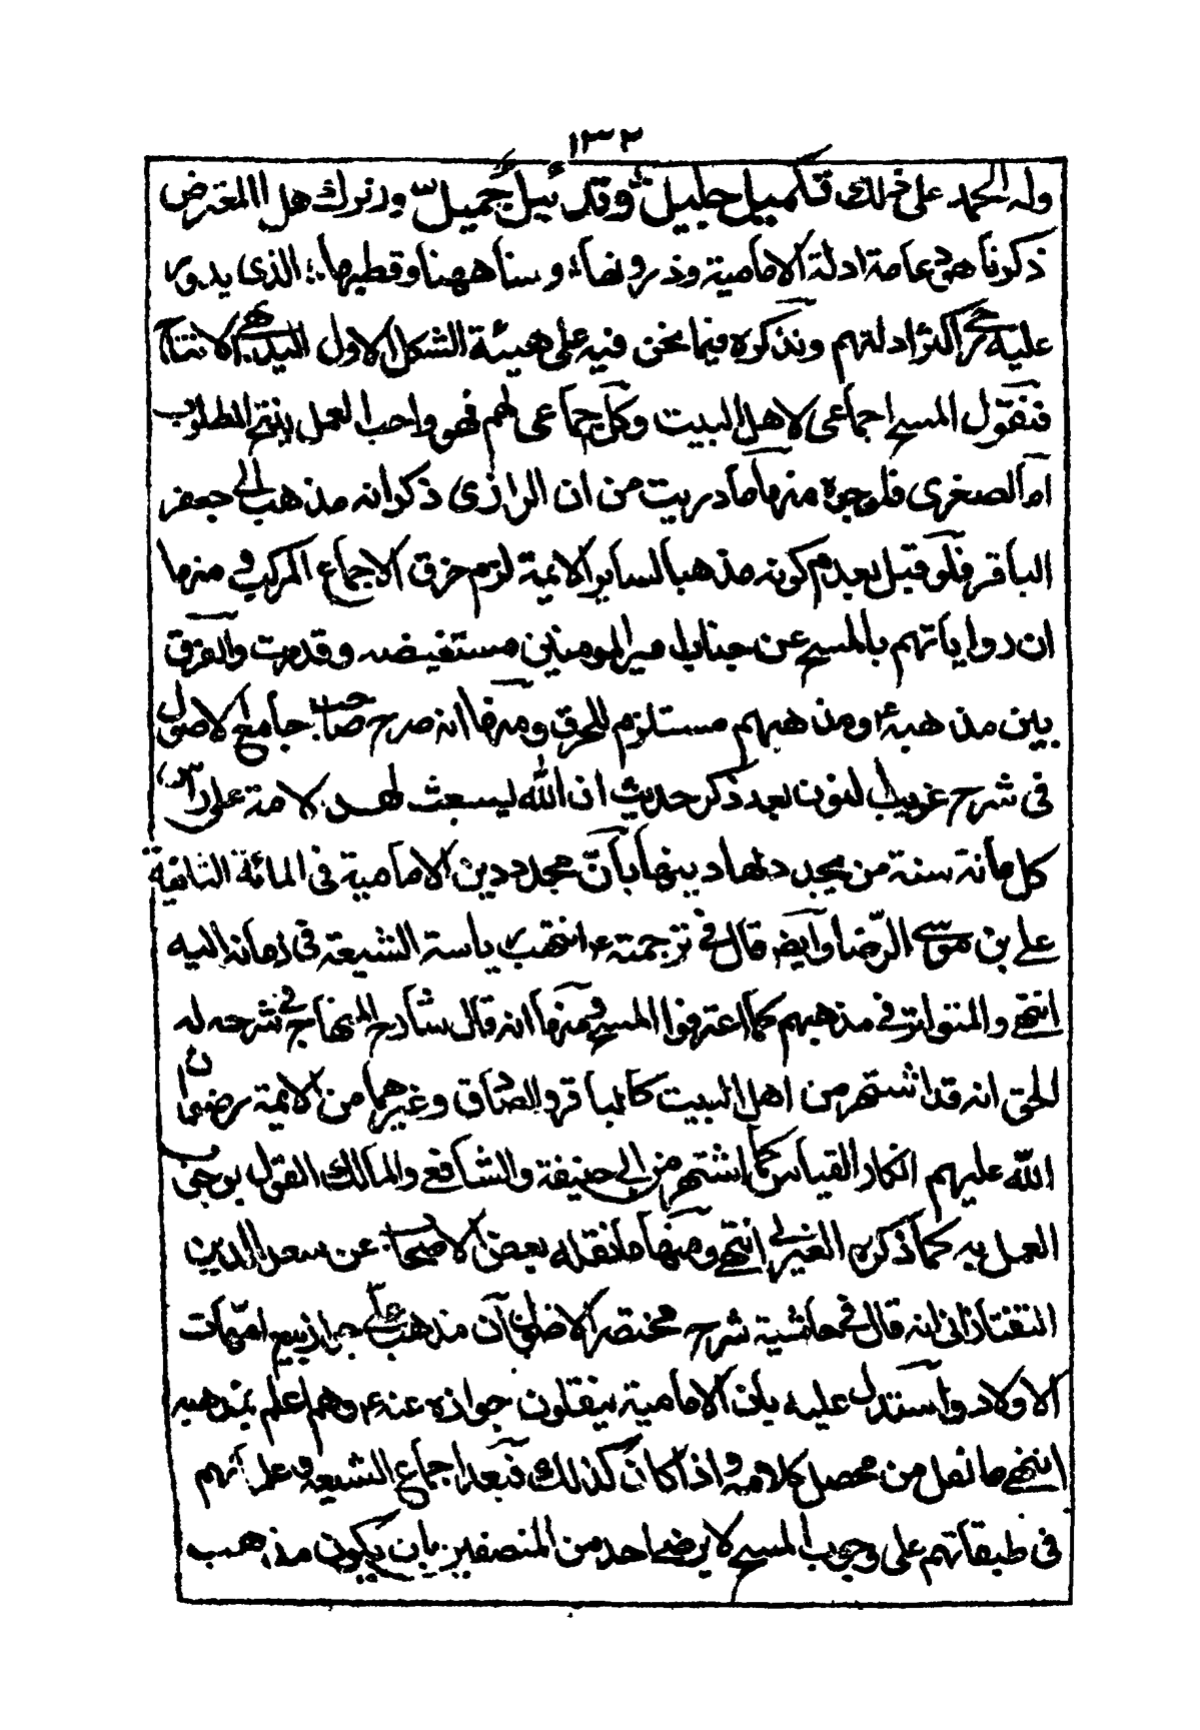 ١٣٢
وله الحمد على ذلك تكميل جليل وتذييل جميل ولنترك هل المعترض
ذكرناه عامة ادلة الامامية وذر ههنا وقطبها الذى يدور
عليه اكثر ادلتهم ونذكره فيما نحن فيه على هيئة الشكل الاول البديهى الانتاج
فنقول المسح اجماعى لاهل البيت وكل اجماعى لهم فهو واجب العمل ينتج المطلوب
اما الصغرى فلوجوه منها ما دريت من ان الرازى ذكر انه مذهب ابى جعفر
الباقر فلو قيل بعدم كونه مذهبا لساير الائمة لزم خرق الاجماع المركب ومنها
ان رواياتهم بالمسح عن جناب امير المومنين مستفيضه وقد مرت والفرق
بين مذهبه ومذهبهم مستلزم للخرق ومنها انه صرح صاحب جامع الاصول
فى شرح غريب النون بعد ذكر حديث ان الله ليبعث لهذه الامة على راس
كل مائة سنة من يجدد لها دينها بان مجدد دين الامامية فى المائة الثانية
على بن موسى الرضا وايضا قال فى ترجمته انتهت رياسة الشيعة فى زمانه اليه
انتهى والمتواتر فى مذهبهم كما اعترفوا المسح ومنها انه قال شارح المنهاج فى شرحه له
الحق انه قد اشتهر من اهل البيت كالباقر والصادق وغيرهما من الائمة رضوان
الله عليهم انكار القياس كما اشتهر من ابى حنيفة والشافعى والمالك القول بوجوب
العمل به كما ذكره الغزالى انتهى ومنها ما نقله بعض الاصحاب عن سعد الدين
التفتازانى انه قال فى حاشية شرح مختصر الاصول ان مذهب على جواز بيع امهات
الاولاد واستدل عليه بان الامامية ينقلون جوازه عنه وهم اعلم بمذهبه
انتهى ما نقل من محصل كلامه واذا كان كذلك فبعد اجماع الشيعة وعلمائهم
فى طبقاتهم على وجوب المسح لا يرضى احد من المنصفين بان يكون مذهب